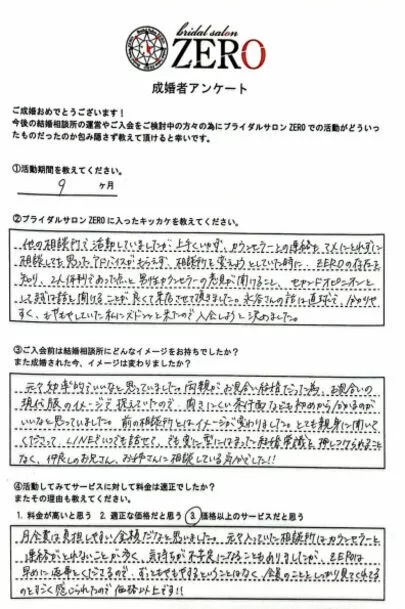 bridal salon
ZERO
成婚者アンケート
ご成婚おめでとうございます！
今後の結婚相談所の運営やご入会をご検討中の方々の為にブライダルサロンZEROでの活動がどういっ
たものだったのか包み隠さず教えて頂けると幸いです。
①活動期間を教えてください。
9 ヶ月
②ブライダルサロンZEROに入ったキッカケを教えてください。
他の相談所で活動していましたが、上手くいかず、カウンセラーとの連絡もマメにとれずに
相談しても思ったアドバイスがもらえず、相談所を変えようとしていた時に、ZEROの存在を
知り、2人体制であった点と男性カウンセラーの意見が聞けること、セカンドオピニオンと
してまずは話を聞けることが良くて来店させて頂きました。永谷さんの話は直球で、分かりや
すく、もやもやしていた私にズドンと来たので入会しようと決めました。
③ご入会前は結婚相談所にどんなイメージをお持ちでしたか？
また成婚された今、イメージは変わりましたか？
元々効率的でいいなと思っていました。両親がお見合い結婚だった為、お見合いの
現代版のイメージで捉えていたので、聞きにくい条件面なども初めから分かるのが
いいなと思っていました。前の相談所とはイメージが変わりました。とても親身に聞いて
くださって、LINEでいつも話せて、でも変に型にはまった結婚常識を押しつけられること
なく、仲良しのお兄さん、お姉さんに相談している気分でした!!
④活動してみてサービスに対して料金は適正でしたか？
またその理由も教えてください。
1. 料金が高いと思う 2. 適正な価格だと思う 3. 価格以上のサービスだと思う
月会費は負担しやすい金額だなと思いました。元々入っていた相談所はカウンセラーと
連絡がとれないことが多く、気持ちが不安になることもありましたが、ZEROは
早めに返事をくださるので、ずっともやもやするということはなく、会員のことをしっかり見てくれてる
のをすごく感じられたので価格以上です!!